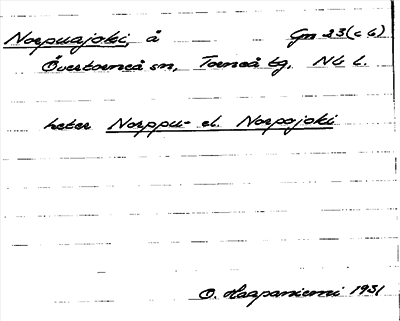 Norpuajoki, å Gn 23(c b)
Övertorneå sn, Torneå tg, Nb l.
heter Norppu- el. Norpojoki
O. Haapaniemi 1931